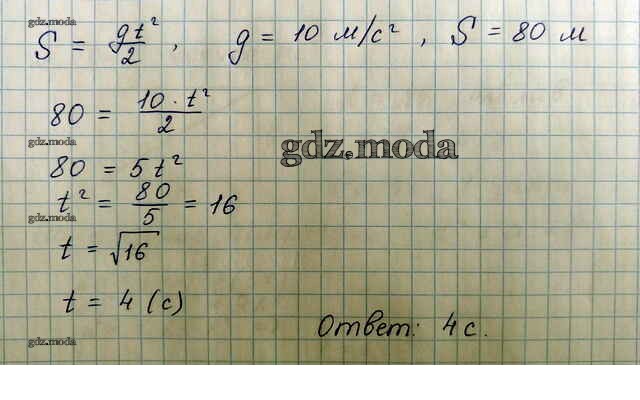 gdz.moda
S = gt²/2 , g = 10 м/с² , S = 80 м
80 = 10 · t²/2
gdz.moda
gdz.moda
80 = 5t²
t² = 80/5 = 16
gdz.moda
t = √16
t = 4 (с)
Ответ: 4с.
gdz.moda